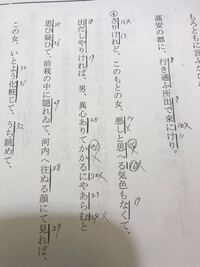 もろともに言ふ
9 10X
高安の郡に、行き通ふ所出で来にけり。
11
④さりけれど、このもとの女、悪しと思へる気色もなくて、
17
18 19
出だしやりければ、男、異心ありてかかるにやあらむと
25 26 28 29
思ひ疑ひて、前栽の中に隠れゐて、河内へ往ぬる顔にて見れば、
30 31 32
この女、いとよう化粧じて、うち眺めて、